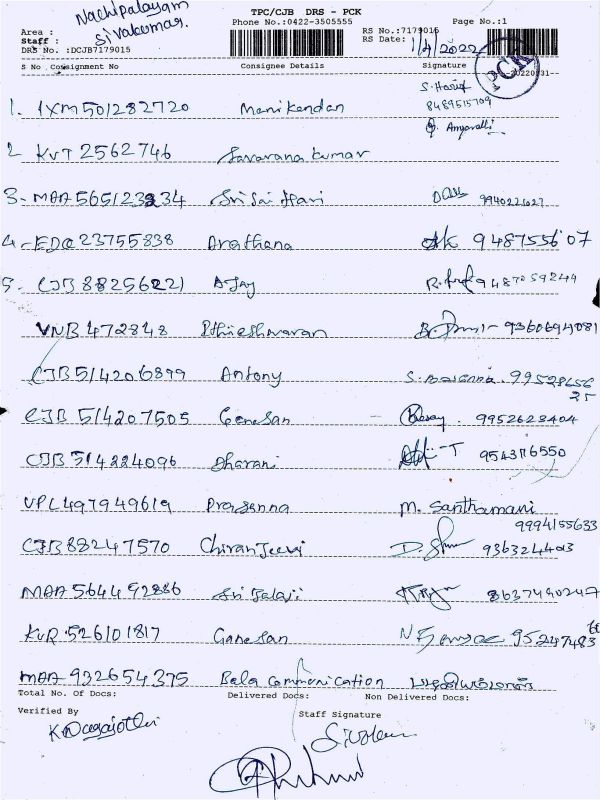 TPC/CJB DRS - PCK
Nachipalayam
Sivakumar.
Area :
Staff :
DRS No. :DCJB7179015
Phone No.:0422-3505555
RS No.:7179015
RS Date: 1/4/2022
Page No.:1
PCK
S No Consignment No Consignee Details Signature
1. 1XM501282720 Manikandan S. Harif
8489515709
2 KVT 2562746 Saravana kumar
3- MAA 565123334 Sri Sai Hari 9940221627
4- EDQ 23755838 Arathana 9487555607
5- CJB 88256221 Ajay 9487059244
VNB 472848 9360694081
CJB 514206899 Antony
CJB 514207505 Ganesan 9952623404
CJB 514224096 Dharani 9543116550
VPL 497949619 Prasanna M. Santhamani
9994155633
CJB 88247570 Chiranjeevi
MAA 564492886 Sri Balaji
KVR 526101817 Ganesan
MAA 932654375 Bala Communication
Total No. Of Docs: Delivered Docs: Non Delivered Docs:
Verified By Staff Signature